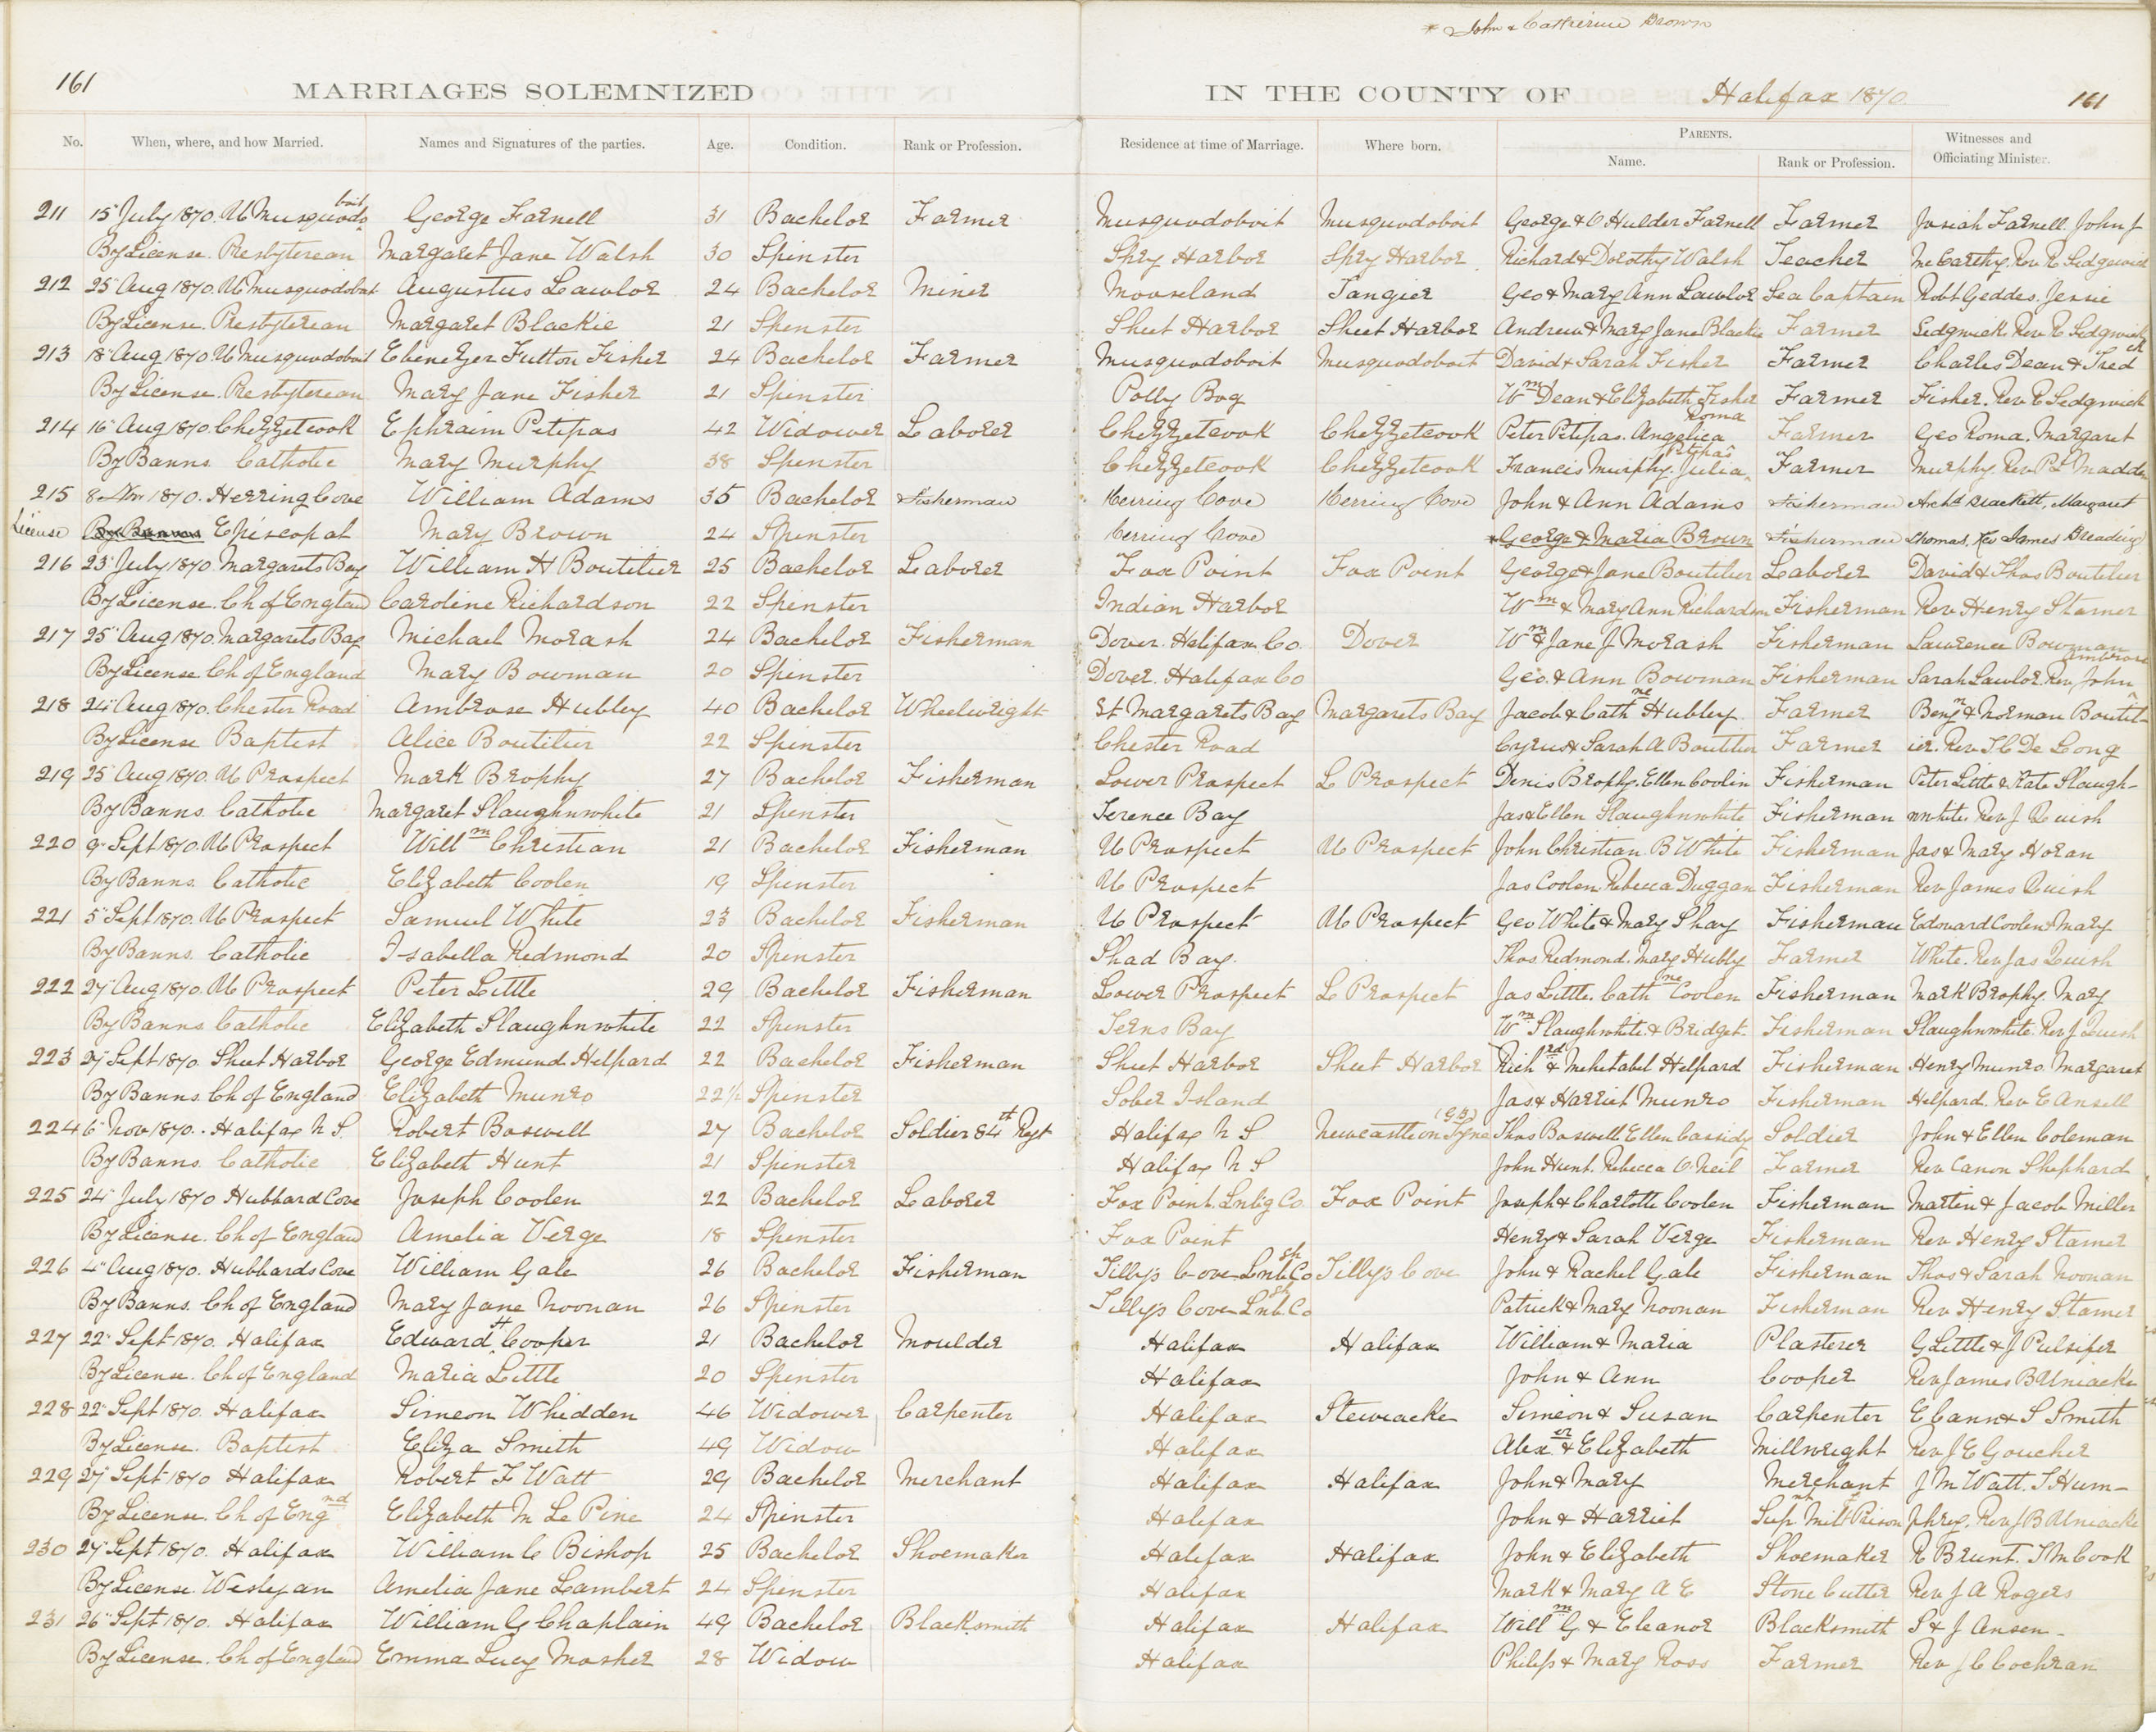 * John & Catherine Brown
161 MARRIAGES SOLEMNIZED IN THE COUNTY OF Halifax 1870 161
No. When, where, and how Married. Names and Signatures of the parties. Age. Condition. Rank or Profession. Residence at time of Marriage. Where born. PARENTS. Name. Rank or Profession. Witnesses and Officiating Minister.
211 15" July 1870. U Musquodoboit George Farnell 31 Bachelor Farmer Musquodoboit Musquodoboit George & Hulder Farnell Farmer Josiah Farnell. John J
By License. Presbyterean Margaret Jane Walsh 30 Spinster Spry Harbor Spry Harbor Richard & Dorothy Walsh Teacher McCarthy. Rev R Sedgwick
212 25" Aug 1870. U Musquodoboit Augustus Lawlor 24 Bachelor Miner Mooseland Tangier Geo & Mary Ann Lawlor Sea Captain Robt Geddes. Jessie
By License. Presbyterean Margaret Blackie 21 Spinster Sheet Harbor Sheet Harbor Andrew & Mary Jane Blackie Farmer Sedgwick. Rev R Sedgwick
213 18" Aug 1870 U Musquodoboit Ebenezer Futton Fisher 24 Bachelor Farmer Musquodoboit Musquodoboit David & Sarah Fisher Farmer Charles Dean & Fred
By License. Presbyterean Mary Jane Fisher 21 Spinster Polly Bog Wm Dean & Elizabeth Fisher Farmer Fisher. Rev R Sedgwick
214 16" Aug 1870 Chezzetcook Ephraim Petipas 42 Widower Laborer Chezzetcook Chezzetcook Peter Petipas. Angelica Roma Farmer Geo Roma. Margaret
By Banns. Catholic Mary Murphy 38 Spinster Chezzetcook Chezzetcook Francis Murphy. Julia Petipas Farmer Murphy. Rev P L Madden
215 8 Nov 1870. Herring Cove William Adams 35 Bachelor Fisherman Herring Cove Herring Cove John & Ann Adams Fisherman Archd Brackett, Margaret
License By Banns Episcopal Mary Brown 24 Spinster Herring Cove * George & Maria Brown Fisherman Thomas. Rev James Breading
216 23" July 1870 Margarets Bay William H Boutilier 25 Bachelor Laborer Fox Point Fox Point George & Jane Boutilier Laborer David & Thos Boutilier
By License. Ch of England Caroline Richardson 22 Spinster Indian Harbor Wm & Mary Ann Richardson Fisherman Rev Henry Stamer
217 25" Aug 1870. Margarets Bay Michael Morash 24 Bachelor Fisherman Dover. Halifax Co. Dover Wm & Jane J Morash Fisherman Lawrence Bowman
By License Ch of England Mary Bowman 20 Spinster Dover. Halifax Co Geo. & Ann Bowman Fisherman Sarah Lawlor. Rev John Ambrose
218 24" Aug 1870. Chester Road Ambrose Hubley 40 Bachelor Wheelwright St Margarets Bay Margarets Bay Jacob & Cathne Hubley Farmer Benjn & Norman Boutil-
By License Baptist Alice Boutilier 22 Spinster Chester Road Cyrus & Sarah A Boutilier Farmer ier. Rev I C De Long
219 25" Aug 1870. U Prospect Mark Brophy 27 Bachelor Fisherman Lower Prospect L Prospect Denis Brophy. Ellen Coolin Fisherman Peter Little & Kate Slaugh-
By Banns. Catholic Margaret Slaughnwhite 21 Spinster Terence Bay Jas & Ellen Slaughnwhite Fisherman nwhite. Rev J Quish
220 9" Sept 1870. U Prospect Willm Christian 21 Bachelor Fisherman U Prospect U Prospect John Christian. B White Fisherman Jas & Mary Horan
By Banns. Catholic Elizabeth Coolen 19 Spinster U Prospect Jas Coolen. Rebecca Duggan Fisherman Rev James Quish
221 5" Sept 1870. U Prospect Samuel White 23 Bachelor Fisherman U Prospect U Prospect Geo White & Mary Shay Fisherman Edward Coolen & Mary
By Banns. Catholic Isabella Redmond 20 Spinster Shad Bay. Thos Redmond. Mary Hubly Farmer White. Rev Jas Quish
222 27" Aug 1870. U Prospect Peter Little 29 Bachelor Fisherman Lower Prospect L Prospect Jas Little. Cathne Coolen Fisherman Mark Brophy. Mary
By Banns Catholic Elizabeth Slaughnwhite 22 Spinster Terns Bay Wm Slaughwhite. & Bridget. Fisherman Slaughnwhite. Rev J Quish
223 27" Sept 1870. Sheet Harbor George Edmund Helpard 22 Bachelor Fisherman Sheet Harbor Sheet Harbor Richd & Mehetabel Helpard Fisherman Henry Munro. Margaret
By Banns. Ch of England Elizabeth Munro 22½ Spinster Sober Island Jas & Harriet Munro Fisherman Helpard. Rev E Ansell
224 6" Nov 1870. Halifax N S. Robert Boswell 27 Bachelor Soldier 84th Regt Halifax N S Newcastle on Tyne (GB) Thos Boswell. Ellen Cassidy Soldier John & Ellen Coleman
By Banns. Catholic Elizabeth Hunt 21 Spinster Halifax N S John Hunt. Rebecca O'Neil Farmer Rev Canon Shephard
225 24" July 1870 Hubbard Cove Joseph Coolen 22 Bachelor Laborer Fox Point. Lnbg Co. Fox Point Joseph & Charlotte Coolen Fisherman Martin & Jacob Miller
By License. Ch of England Amelia Verge 18 Spinster Fox Point Henry & Sarah Verge Fisherman Rev Henry Stamer
226 4" Aug 1870. Hubbards Cove William Gale 26 Bachelor Fisherman Tilly's Cove Lnb Co Tilly's Cove John & Rachel Gale Fisherman Thos & Sarah Noonan
By Banns. Ch of England Mary Jane Noonan 26 Spinster Tilly's Cove Lnb Co Patrick & Mary Noonan Fisherman Rev Henry Stamer
227 22" Sept 1870. Halifax Edward H Cooper 21 Bachelor Moulder Halifax Halifax William & Maria Plasterer G Little & J Pulsifer
By License. Ch of England Maria Little 20 Spinster Halifax John & Ann Cooper Rev James B Uniacke
228 22" Sept 1870. Halifax Simeon Whidden 46 Widower Carpenter Halifax Stewiacke Simeon & Susan Carpenter E Cann & S Smith
By License. Baptist Eliza Smith 49 Widow Halifax Alexr & Elizabeth Millwright Rev J E Goucher
229 27" Sept 1870 Halifax Robert F Watt 29 Bachelor Merchant Halifax Halifax John & Mary Merchant J M Watt. T Hum-
By License. Ch of Engnd Elizabeth M Le Pine 24 Spinster Halifax John & Harriet Supnt Milt Prison phrey. Rev J B Uniacke
230 27" Sept 1870. Halifax William C Bishop 25 Bachelor Shoemaker Halifax Halifax John & Elizabeth Shoemaker R Brunt. T M Cook
By License. Wesleyan Amelia Jane Lambert 24 Spinster Halifax Mark & Mary A E Stone Cutter Rev J A Rogers
231 26" Sept 1870. Halifax William G Chaplain 49 Bachelor Blacksmith Halifax Halifax Willm G & Eleanor Blacksmith S & J Ansen-
By License. Ch of England Emma Lucy Mosher 28 Widow Halifax Philip & Mary Ross Farmer Rev J C Cochran